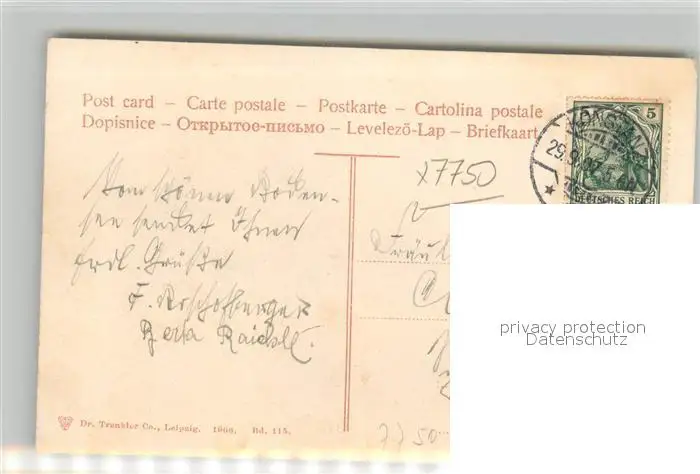 Post card – Carte postale – Postkarte – Cartolina postale
Dopisnice – Открытое-письмо – Levelező-Lap – Briefkaart
5
DEUTSCHES REICH
x7750
Vom schönen Boden-
see sendet Ihnen
frdl. Grüße
F.
Raichle.
privacy protection
Datenschutz
7750
Dr. Trenkler Co., Leipzig. 1906. Bd. 115.